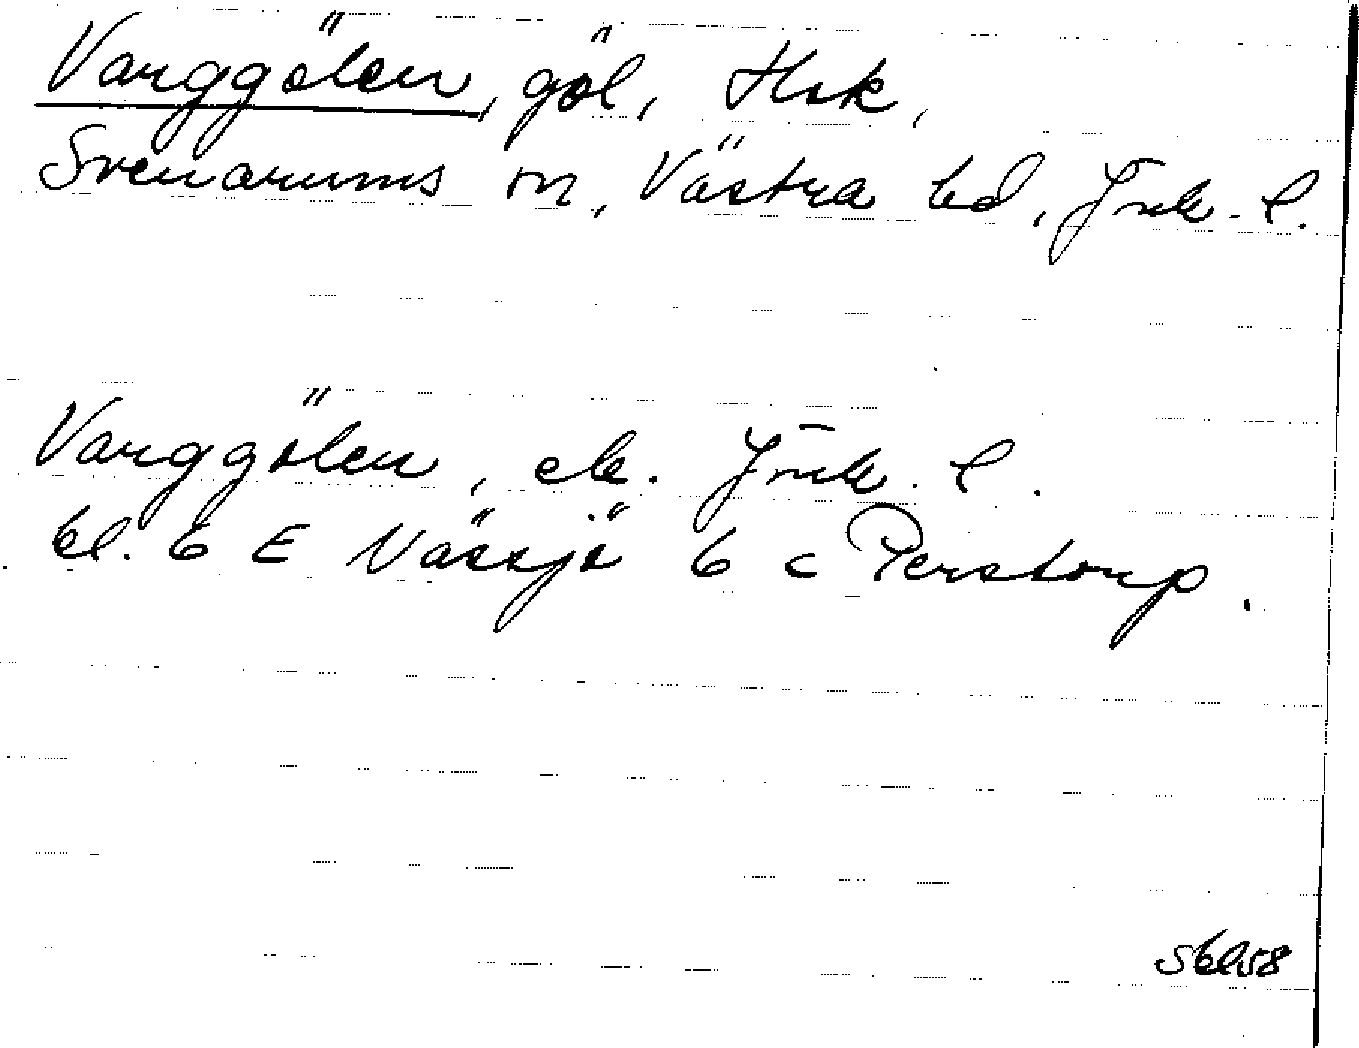 Varggölen, göl, Hsk,
Svenarums sn, Västra hd, Jnk. l.
Varggölen, ek. Jnk. l.
bl. 6 E Nässjö 6 c Perstorp.